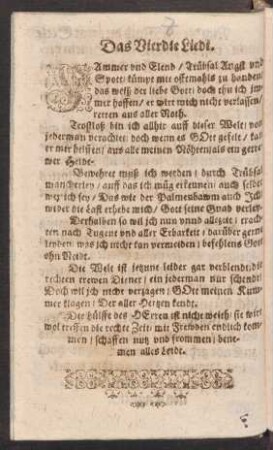 Das Vierdte Liedt.
JAmmer vnd Elend / Trübsal Angst vnd
Spott / kümpt mir offtmahls zu handen /
das weiß der liebe Gott / doch thu ich jm-
mer hoffen / er wirt mich nicht verlassen /
retten aus aller Noth.
Trostloß bin ich allhir auff dieser Welt / von
jederman verachtet / doch wenn es GOtt gefelt / kan
er mir helffen / aus alle meinen Nöhten / als ein getre-
wer Heldt.
Bewehret muß ich werden / durch Trübsal
mancherley / auff das ich müg erkennen / auch selbst
wer ich sey / Das wie der Palmenbawm auch Jch
wider die last erhebe mich / Gott seine Gnad verley.
Derhalben so wil ich nun vnnd allezeit / trach-
ten nach Tugent vnd aller Erbarkeit / darüber gerne
leyden was ich nicht kan vermeiden / befehlens Gott
ohn Neidt.
Die Welt ist jetzunt leider gar verblendt / die
rechten trewen Diener / ein jederman nur schendt /
Doch wil jch nicht verzagen / GOtt meinen Kum-
mer klagen / Der aller Hertzen kendt.
Die hülffe des HErren ist nicht weith / sie wirt
wol treffen die rechte Zeit / mit Frewden endlich kom-
men / schaffen nutz vnd frommen / bene-
men alles Leidt.